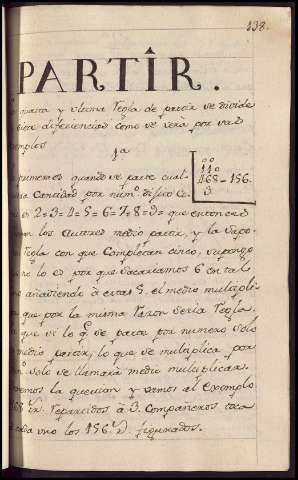 138.
PARTÎR.
quarta y ultima Regla de partir se divide
diferencias como se verà por sus
emplos
1a
primeros quando se parte cual-
Cantidad por num.o
2=3=4=5=6=7=8=9= que entonces
los Autores medio partir, y la supo-
Regla con que Completan cinco, supongo
no lo es por que sacariamos 6 en tal
añadiendo à estas 5. el medio multipli-
que por la misma razon seria Regla
que si lo q.e se parte por numero solo
medio partir, lo que se multiplica por
solo se llamarà medio multiplicar.
la question y vamos al Exemplo
468 Repartidos à 3. Compañeros toca
uno los 156 figurados.
00
110
468-156.
3